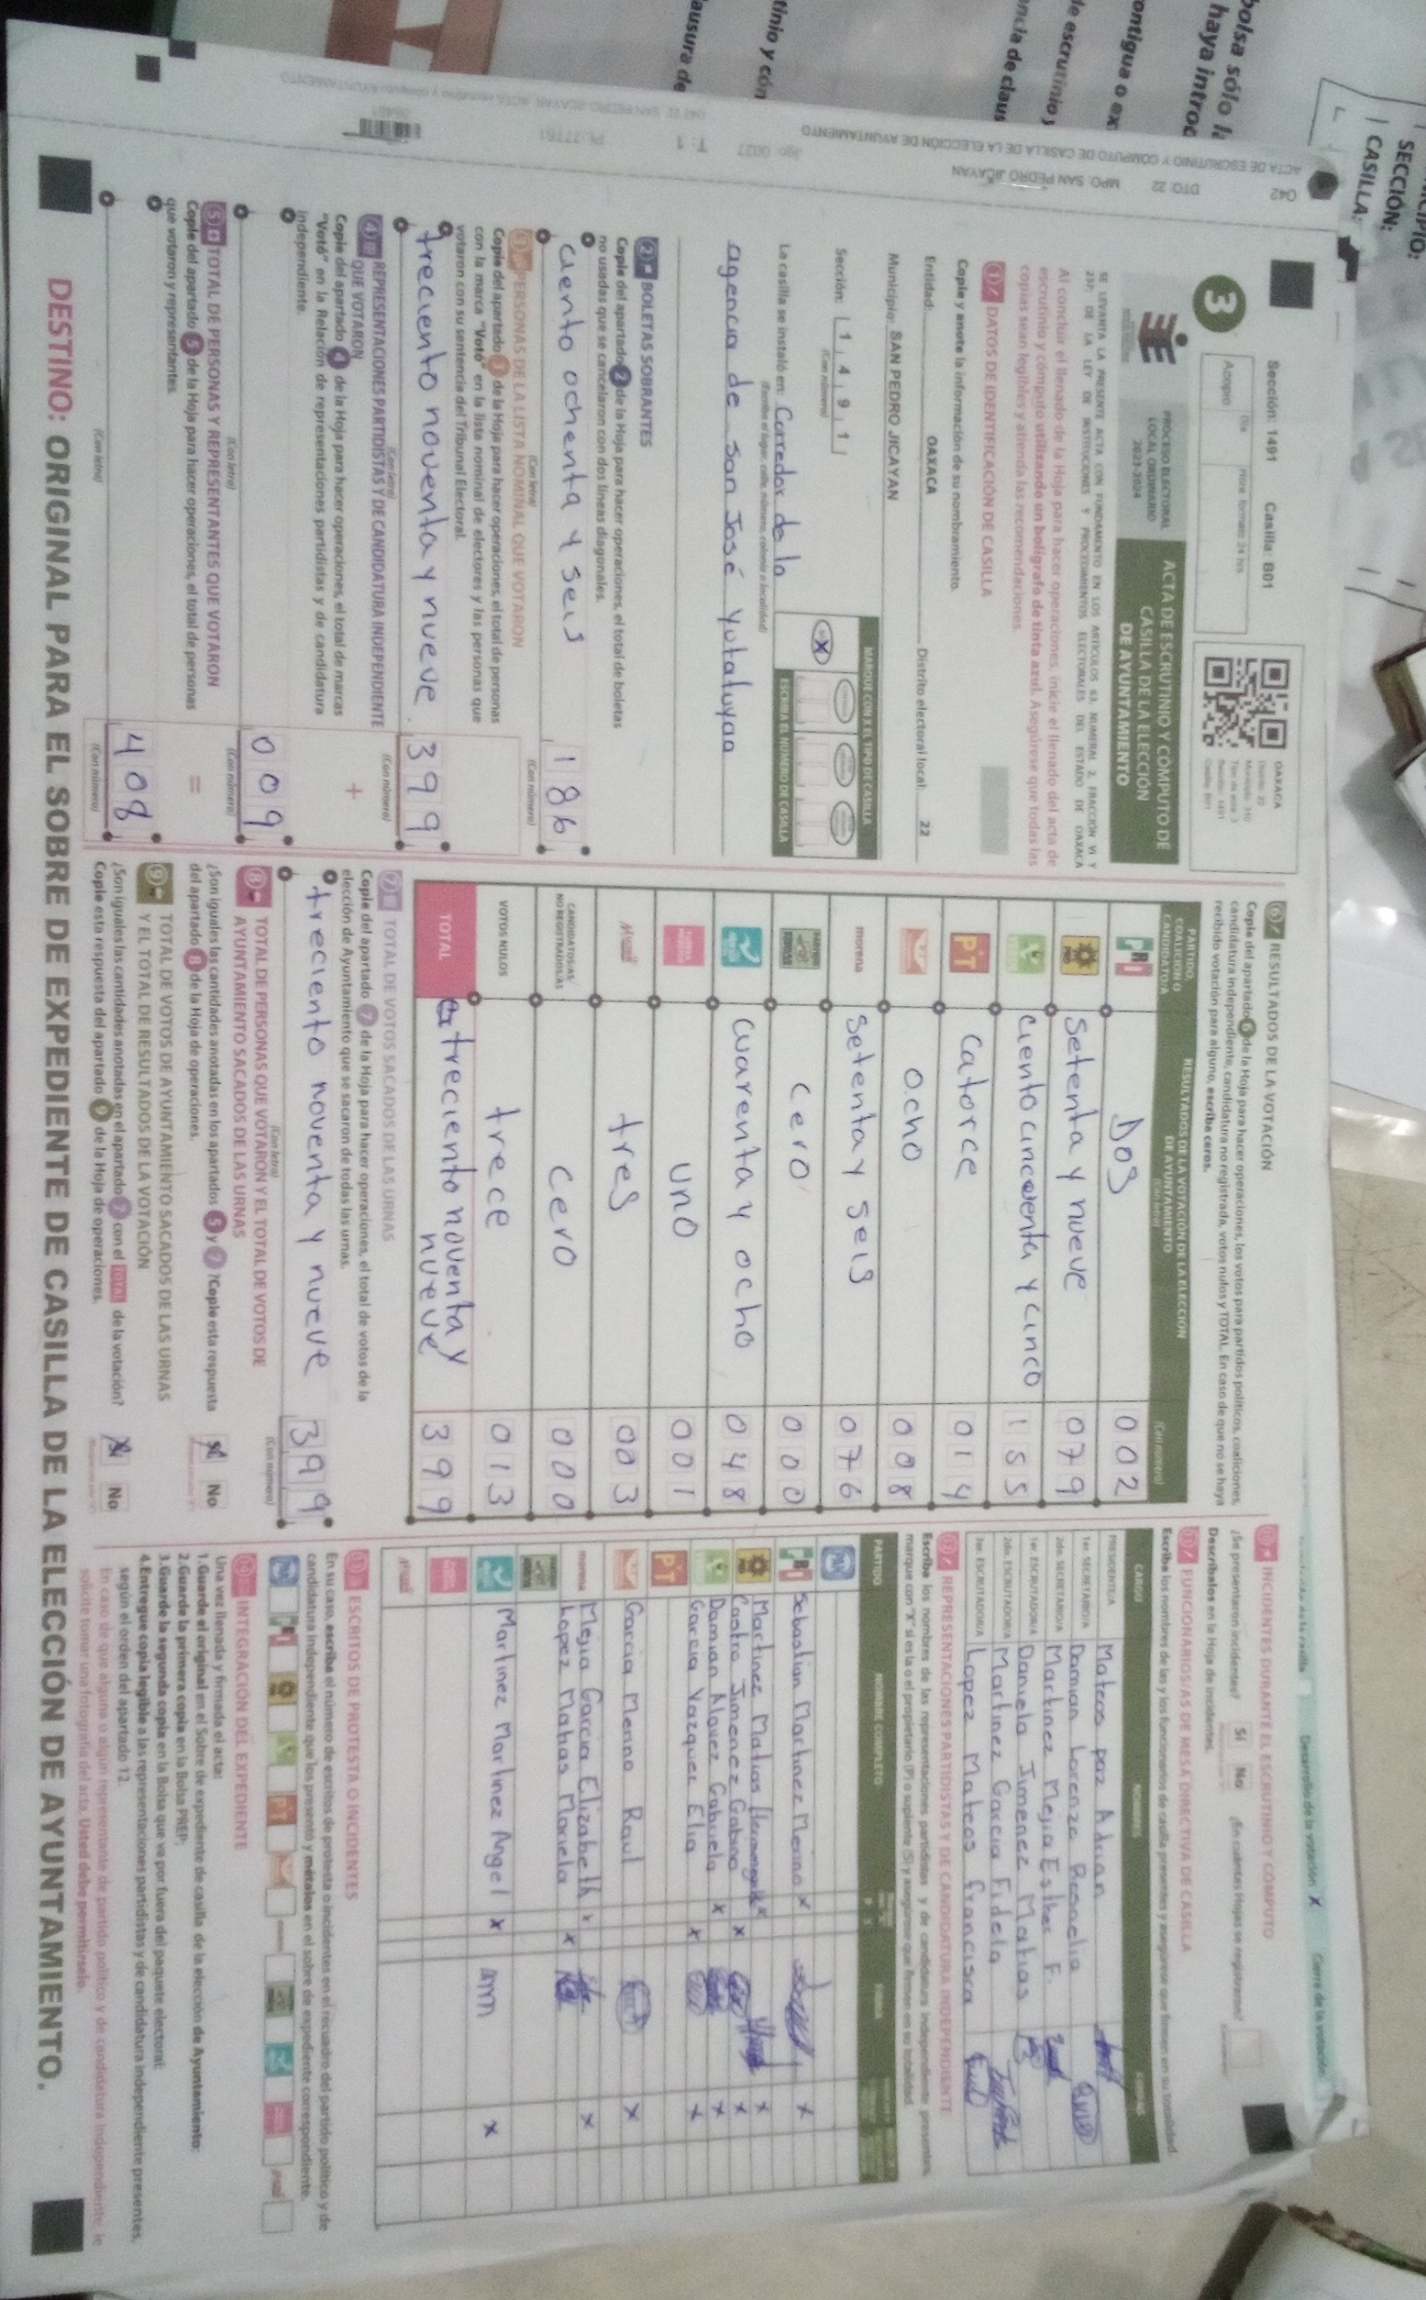 SECCIÓN:
CASILLA:
bolsa sólo l
haya introc
ontigua o ex
de escrutinio y
ncia de claus
tinio y cón
lausura de
ACTA DE ESCRUTINIO Y CÓMPUTO DE CASILLA DE LA ELECCIÓN DE AYUNTAMIENTO
DTO: 22 MPO: SAN PEDRO JICAYAN
Sección: 1491 Casilla: B01
3
Acopio
OAXACA
PROCESO ELECTORAL
LOCAL ORDINARIO
2023-2024
ACTA DE ESCRUTINIO Y CÓMPUTO DE
CASILLA DE LA ELECCIÓN
DE AYUNTAMIENTO
SE LEVANTA LA PRESENTE ACTA CON FUNDAMENTO EN LOS ARTÍCULOS 63, NUMERAL 2, FRACCIÓN VI Y
237, DE LA LEY DE INSTITUCIONES Y PROCEDIMIENTOS ELECTORALES DEL ESTADO DE OAXACA
Al concluir el llenado de la Hoja para hacer operaciones, inicie el llenado del acta de
escrutinio y cómputo utilizando un bolígrafo de tinta azul. Asegúrese que todas las
copias sean legibles y atienda las recomendaciones.
1 DATOS DE IDENTIFICACIÓN DE CASILLA
Copie y anote la información de su nombramiento.
Entidad: OAXACA Distrito electoral local: 22
Municipio: SAN PEDRO JICAYAN
Sección: 1 4 9 1
(Con número)
MARQUE CON X EL TIPO DE CASILLA
X
ESCRIBA EL NÚMERO DE CASILLA
La casilla se instaló en: Corredor de la
(Escriba el lugar: calle, número, colonia o localidad)
agencia de San José Yutatuyaa
2 BOLETAS SOBRANTES
Copie del apartado 2 de la Hoja para hacer operaciones, el total de boletas
no usadas que se cancelaron con dos líneas diagonales.
ciento ochenta y seis 186
(Con letra) (Con número)
3 PERSONAS DE LA LISTA NOMINAL QUE VOTARON
Copie del apartado 3 de la Hoja para hacer operaciones, el total de personas
con la marca "Votó" en la lista nominal de electores y las personas que
votaron con su sentencia del Tribunal Electoral.
treciento noventa y nueve. 399
(Con letra) (Con número)
4 REPRESENTACIONES PARTIDISTAS Y DE CANDIDATURA INDEPENDIENTE
QUE VOTARON
+
Copie del apartado 4 de la Hoja para hacer operaciones, el total de marcas
"Votó" en la Relación de representaciones partidistas y de candidatura
independiente.
009
(Con letra) (Con número)
5 TOTAL DE PERSONAS Y REPRESENTANTES QUE VOTARON
=
Copie del apartado 5 de la Hoja para hacer operaciones, el total de personas
que votaron y representantes.
408
(Con letra) (Con número)
6 RESULTADOS DE LA VOTACIÓN
Copie del apartado 6 de la Hoja para hacer operaciones, los votos para partidos políticos, coaliciones,
candidatura independiente, candidatura no registrada, votos nulos y TOTAL. En caso de que no se haya
recibido votación para alguno, escriba ceros.
PARTIDO,
COALICIÓN O
CANDIDATO/A
RESULTADOS DE LA VOTACIÓN DE LA ELECCIÓN
DE AYUNTAMIENTO
(Con letra) (Con número)
PRI Dos 002
PRD Setenta y nueve 079
ciento cincuenta y cinco 155
PT Catorce 014
ocho 008
morena Setenta y seis 076
cero 000
cuarenta y ocho 048
uno 001
tres 003
CANDIDATOS/AS
NO REGISTRADOS/AS
cero 000
VOTOS NULOS trece 013
TOTAL treciento noventa y
nueve 399
7 TOTAL DE VOTOS SACADOS DE LAS URNAS
Copie del apartado 7 de la Hoja para hacer operaciones, el total de votos de la
elección de Ayuntamiento que se sacaron de todas las urnas.
treciento noventa y nueve 399
(Con letra) (Con número)
8 TOTAL DE PERSONAS QUE VOTARON Y EL TOTAL DE VOTOS DE
AYUNTAMIENTO SACADOS DE LAS URNAS
¿Son iguales las cantidades anotadas en los apartados 5 y 7? Copie esta respuesta
del apartado 8 de la Hoja de operaciones.
Sí No
9 TOTAL DE VOTOS DE AYUNTAMIENTO SACADOS DE LAS URNAS
Y EL TOTAL DE RESULTADOS DE LA VOTACIÓN
¿Son iguales las cantidades anotadas en el apartado 7 con el TOTAL de la votación?
Copie esta respuesta del apartado 9 de la Hoja de operaciones.
Sí No
Desarrollo de la votación X Cierre de la votación
10 INCIDENTES DURANTE EL ESCRUTINIO Y CÓMPUTO
¿Se presentaron incidentes? Sí No ¿En cuántas Hojas se registraron?
Descríbalos en la Hoja de incidentes.
11 FUNCIONARIOS/AS DE MESA DIRECTIVA DE CASILLA
Escriba los nombres de las y los funcionarios de casilla presentes y asegúrese que firmen en su totalidad.
CARGO NOMBRES FIRMAS
PRESIDENTE/A Mateos paz Adrian
1er. SECRETARIO/A Damian Lorenzo Rosoelia
2do. SECRETARIO/A Martinez Mejia Esther F.
1er. ESCRUTADOR/A Daniela Jimenez Matias
2do. ESCRUTADOR/A Martinez Garcia Fidela
3er. ESCRUTADOR/A Lopez Mateos francisca
12 REPRESENTACIONES PARTIDISTAS Y DE CANDIDATURA INDEPENDIENTE
Escriba los nombres de las representaciones partidistas y de candidatura independiente presentes,
marque con "X" si es la o el propietario (P) o suplente (S) y asegúrese que firmen en su totalidad.
PARTIDO NOMBRE COMPLETO FIRMA
PRI Sebastian Martinez Merino x x
Martinez Matias x x
PRD Castro Jimenez Gabino x x
Damian Alavez Gabriela x x
Garcia Vazquez Elia x x
PT
Garcia Merino Raul x
morena Mejia Garcia Elizabeth x x
Lopez Mariela x
Martinez Martinez Angel x AMM x
13 ESCRITOS DE PROTESTA O INCIDENTES
En su caso, escriba el número de escritos de protesta o incidentes en el recuadro del partido político y de
candidatura independiente que los presentó y métalos en el sobre de expediente correspondiente.
14 INTEGRACIÓN DEL EXPEDIENTE
Una vez llenada y firmada el acta:
1.Guarde el original en el Sobre de expediente de casilla de la elección de Ayuntamiento;
2.Guarde la primera copia en la Bolsa PREP;
3.Guarde la segunda copia en la Bolsa que va por fuera del paquete electoral;
4.Entregue copia legible a las representaciones partidistas y de candidatura independiente presentes,
según el orden del apartado 12.
En caso de que alguna o algún representante de partido político y de candidatura independiente, le
solicite tomar una fotografía del acta. Usted debe permitírselo.
DESTINO: ORIGINAL PARA EL SOBRE DE EXPEDIENTE DE CASILLA DE LA ELECCIÓN DE AYUNTAMIENTO.